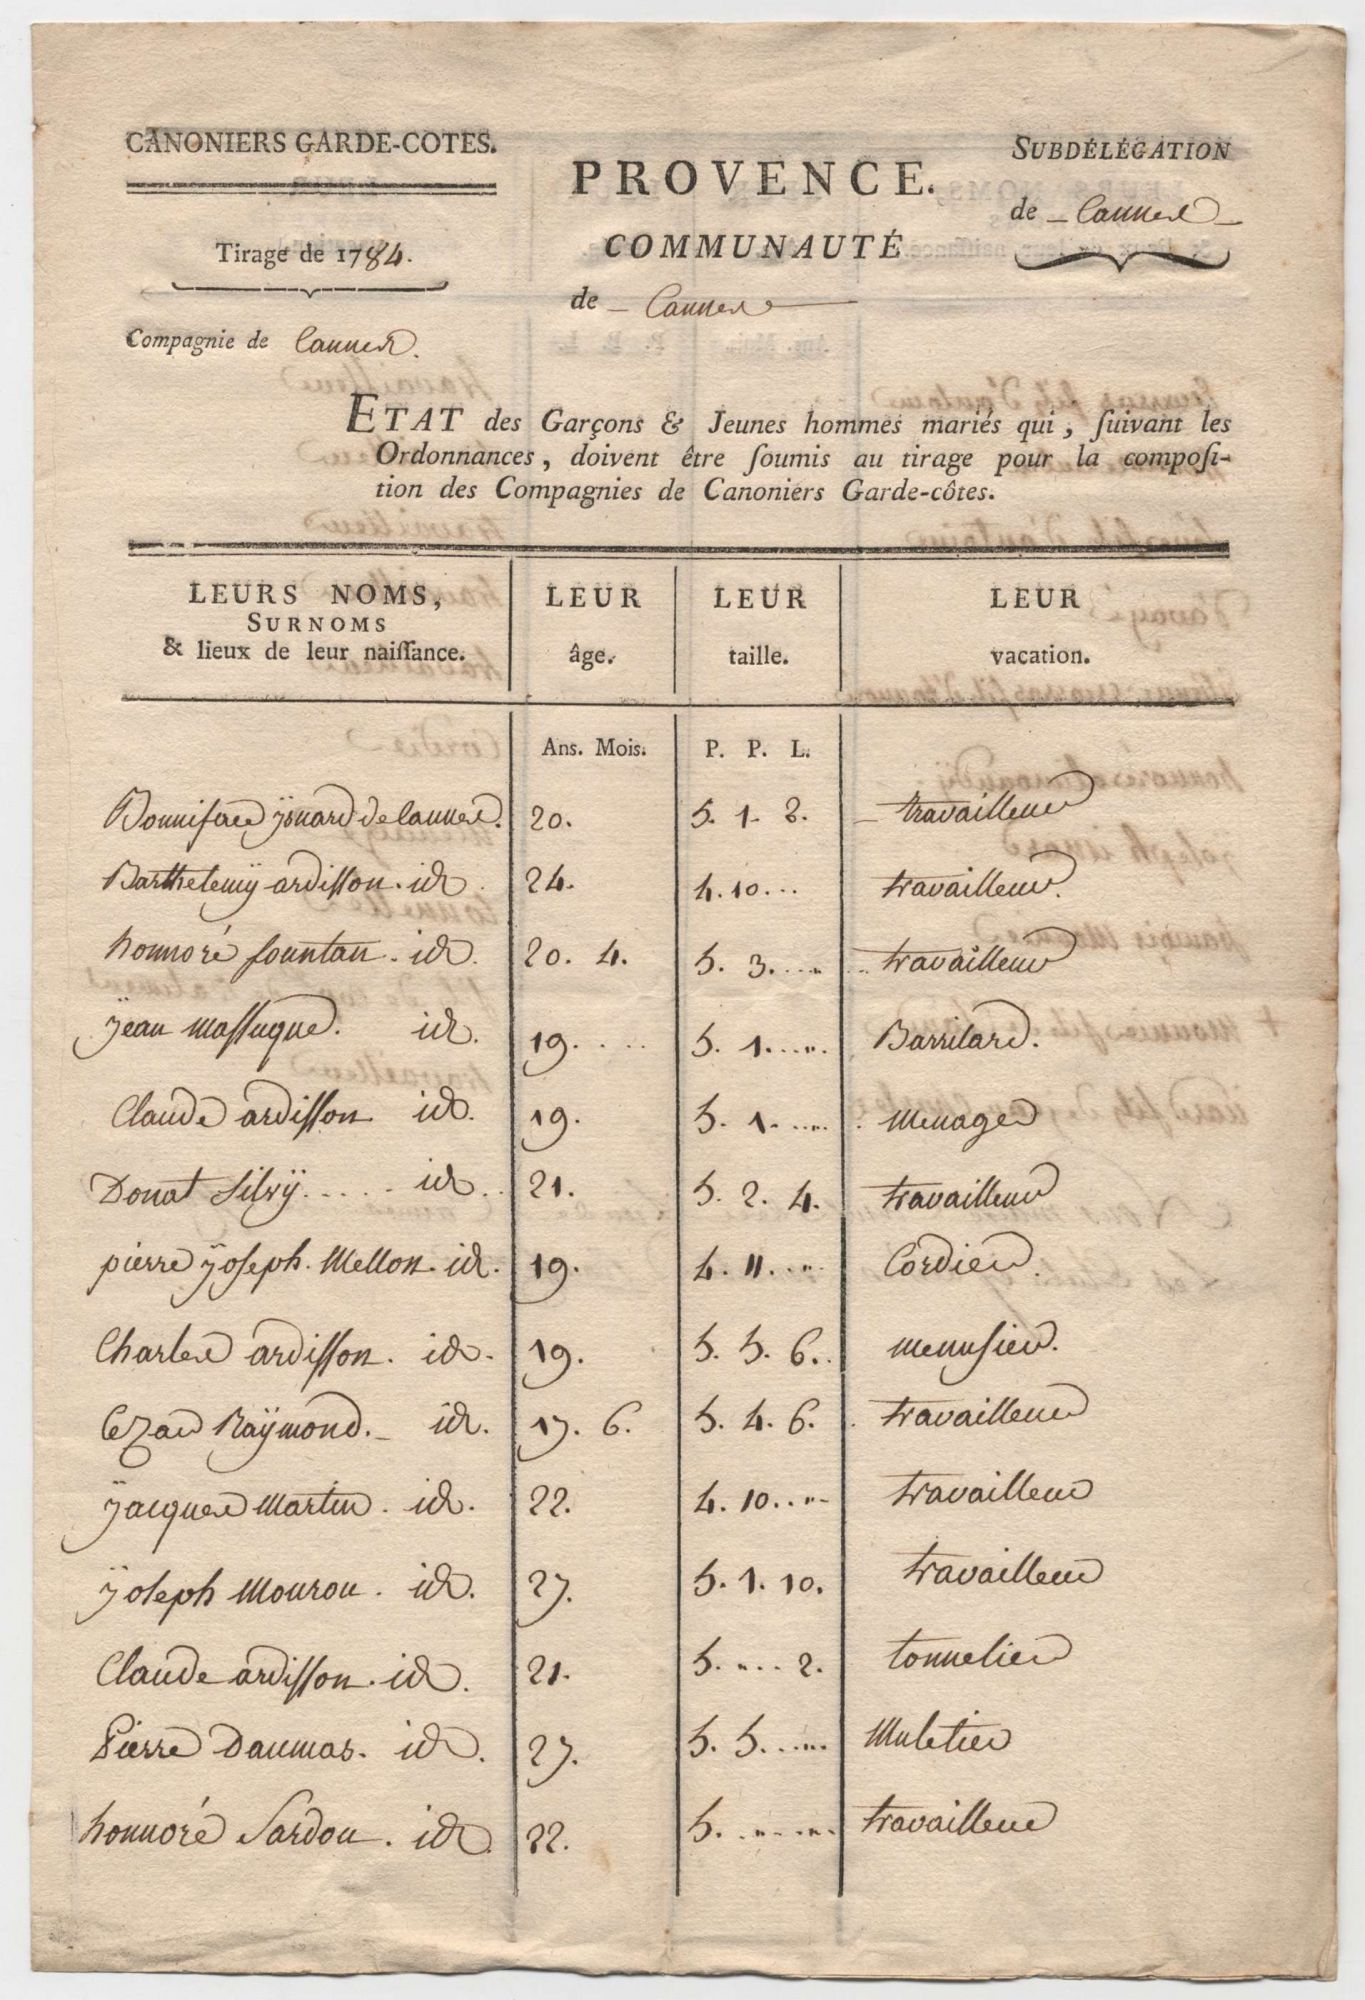 CANONIERS GARDE-COTES.
Tirage de 1784.
Compagnie de Cannes.
PROVENCE.
COMMUNAUTÉ
de - Cannes
SUBDÉLÉGATION
de - Cannes -
ETAT des Garçons & Jeunes hommes mariés qui, ſuivant les
Ordonnances, doivent être ſoumis au tirage pour la compoſi-
tion des Compagnies de Canoniers Garde-côtes.
LEURS NOMS, SURNOMS & lieux de leur naiſſance. LEUR âge. LEUR taille. LEUR vacation.
Ans. Mois. P. P. L.
Bonniface ÿsnard de Cannes. 20. 5. 1. 2. travailleur
Barthelemÿ ardisson. id. 24. 4. 10... travailleur.
honnoré fountan. id. 20. 4. 5. 3. travailleur
ÿean Massuque. id. 19. 5. 1. Barrilard.
Claude ardisson id. 19. 5. 1. menager
Donat Silvÿ..... id. 21. 5. 2. 4. travailleur
pierre ÿoseph. Mellon. id. 19. 4. 11. Cordier.
Charles ardisson. id. 19. 5. 5. 6. menusier.
Cezar Raÿmond. id. 17. 6. 5. 4. 6. travailleur
ÿacques Martin. id. 22. 4. 10. travailleur
ÿoseph Mourou. id. 27. 5. 1. 10. travailleur
Claude ardisson. id. 21. 5. 2. tonnelier
Pierre Daumas. id. 27. 5. 5. Muletier
honnoré Sardou. id. 22. 5. travailleur